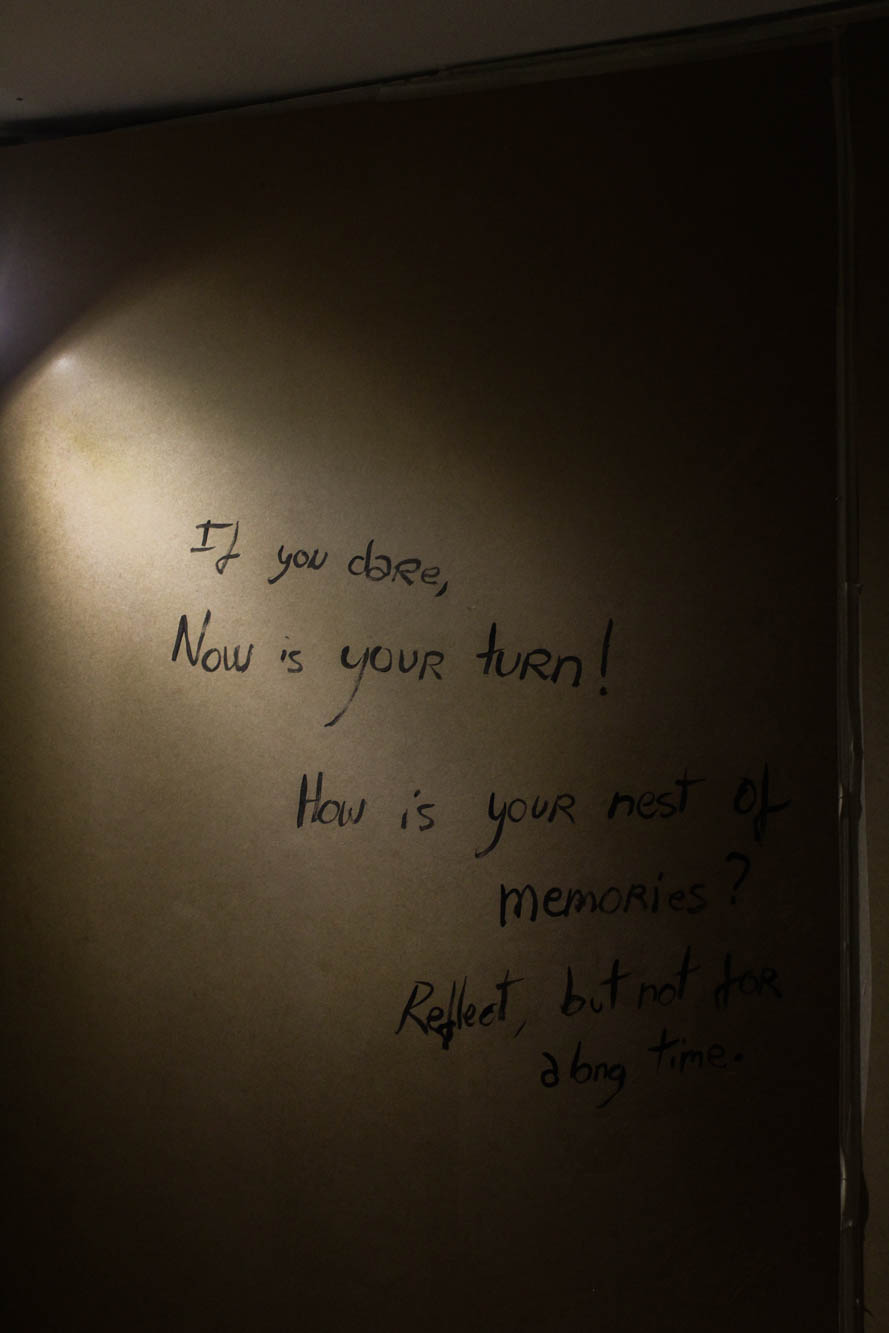 If you dare,
Now is your turn!
How is your nest of
memories?
Reflect, but not for
a long time.